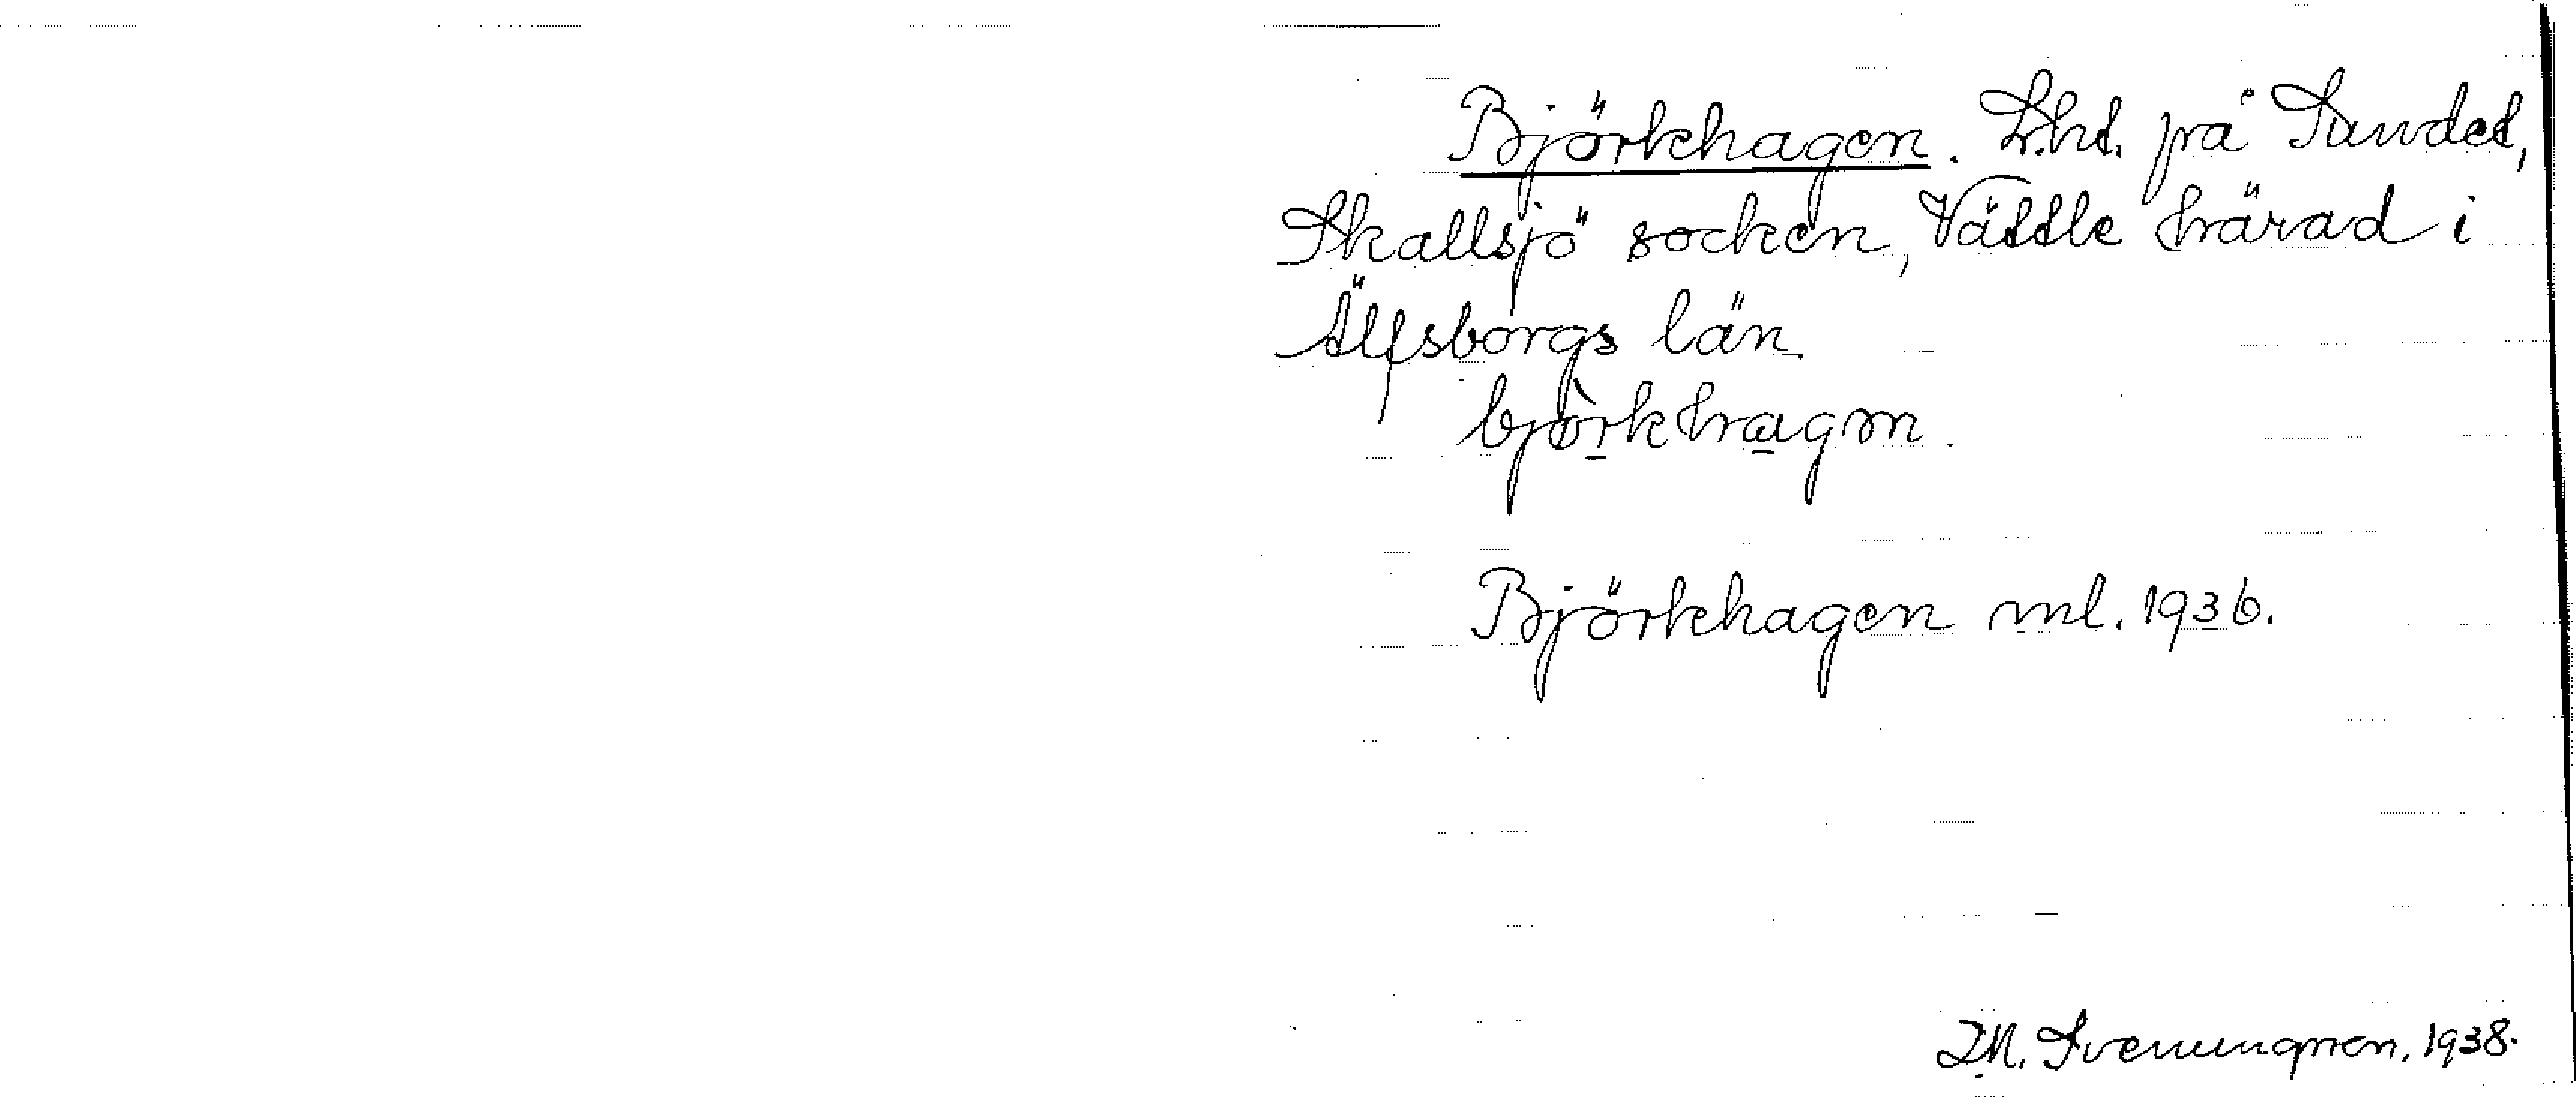 Björkhagen. Lht. på Sundet,
Skallsjö socken, Vättle härad i
Älfsborgs län.
bjö̀rkhagən.
Björkhagen ml. 1936.
Sveningson, 1938.